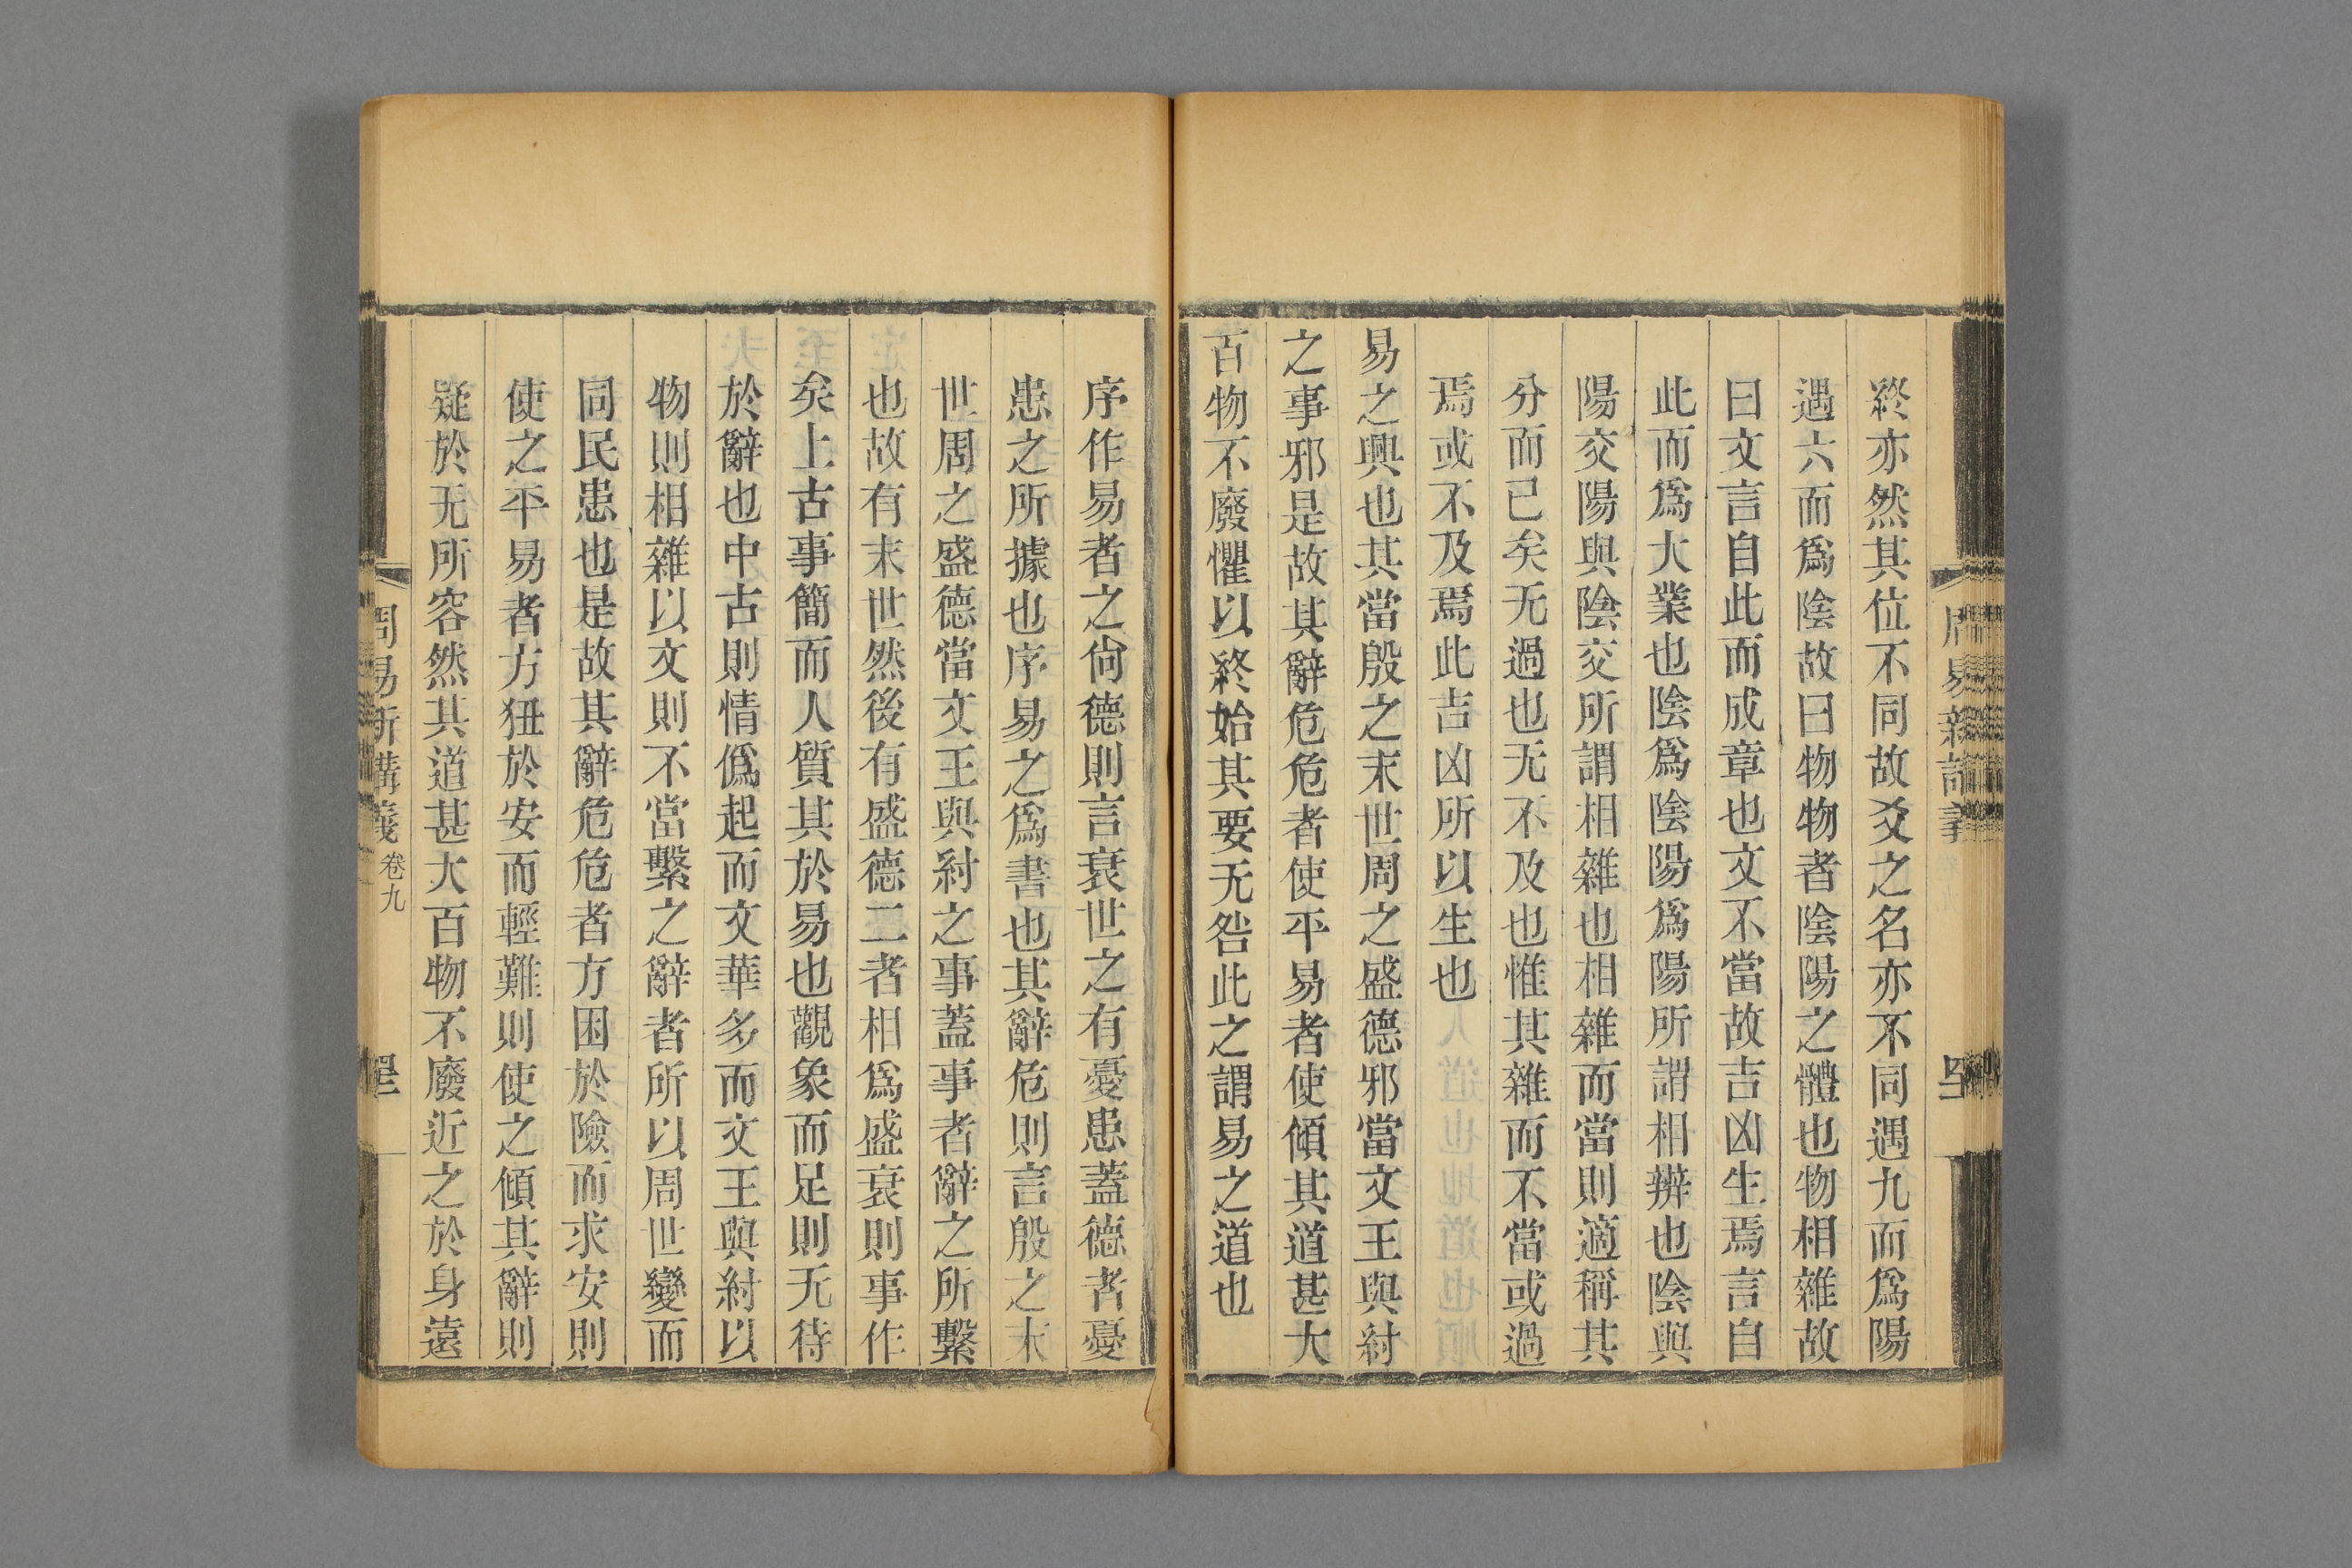 終亦然其位不同故爻之名亦不同遇九而爲陽
遇六而爲陰故曰物物者陰陽之體也物相雜故
曰文言自此而成章也文不當故吉凶生焉言自
此而爲大業也陰爲陰陽爲陽所謂相辨也陰與
陽交陽與陰交所謂相雜也相雜而當則適稱其
分而已矣无過也无不及也惟其雜而不當或過
焉或不及焉此吉凶所以生也
易之興也其當殷之末世周之盛德邪當文王與紂
之事邪是故其辭危危者使平易者使傾其道甚大
百物不廢懼以終始其要无咎此之謂易之道也
序作易者之尙德則言衰世之有憂患蓋德者憂
患之所據也序易之爲書也其辭危則言殷之末
世周之盛德當文王與紂之事蓋事者辭之所繫
也故有末世然後有盛德二者相爲盛衰則事作
矣上古事簡而人質其於易也觀象而足則无待
於辭也中古則情僞起而文華多而文王與紂以
物則相雜以文則不當繫之辭者所以周世變而
同民患也是故其辭危危者方困於險而求安則
使之平易者方狃於安而輕難則使之傾其辭則
疑於无所容然其道甚大百物不廢近之於身遠
周易新講義 卷九